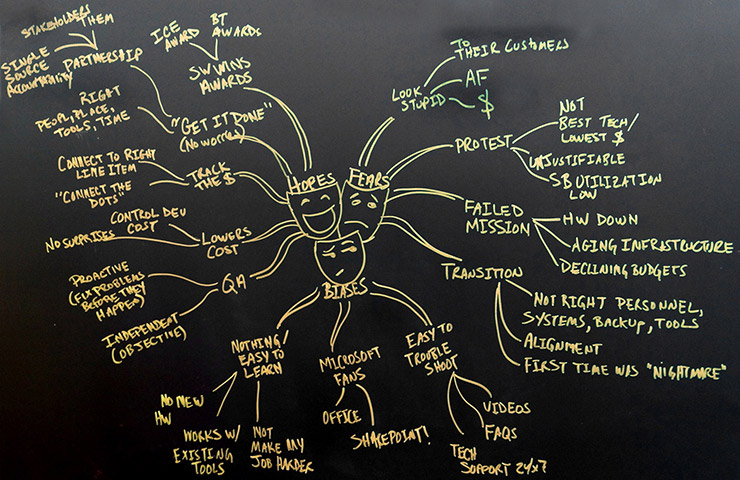 STAKEHOLDERS
THEM
SINGLE
SOURCE
ACCOUNTABILITY
PARTNERSHIP
ICE
AWARD
BT
AWARDS
SW WINS
AWARDS
RIGHT
PEOPLE, PLACE,
TOOLS, TIME
"GET IT DONE"
(NO WORRIES)
CONNECT TO RIGHT
LINE ITEM
"CONNECT THE
DOTS"
TRACK
THE $
CONTROL DEV
COST
NO SURPRISES
LOWERS
COST
PROACTIVE
(FIX PROBLEMS
BEFORE THEY
HAPPEN)
INDEPENDENT
(OBJECTIVE)
QA
HOPES
FEARS
BIASES
LOOK
STUPID
TO
THEIR CUSTOMERS
AF
$
PROTEST
NOT
BEST TECH/
LOWEST $
UNJUSTIFIABLE
SB UTILIZATION
LOW
FAILED
MISSION
HW DOWN
AGING INFRASTRUCTURE
DECLINING BUDGETS
TRANSITION
NOT RIGHT PERSONNEL,
SYSTEMS, BACKUP, TOOLS
ALIGNMENT
FIRST TIME WAS "NIGHTMARE"
NOTHING/
EASY TO
LEARN
NO NEW
HW
WORKS W/
EXISTING
TOOLS
NOT
MAKE MY
JOB HARDER
MICROSOFT
FANS
OFFICE
SHAREPOINT!
EASY TO
TROUBLE
SHOOT
VIDEOS
FAQS
TECH
SUPPORT 24x7